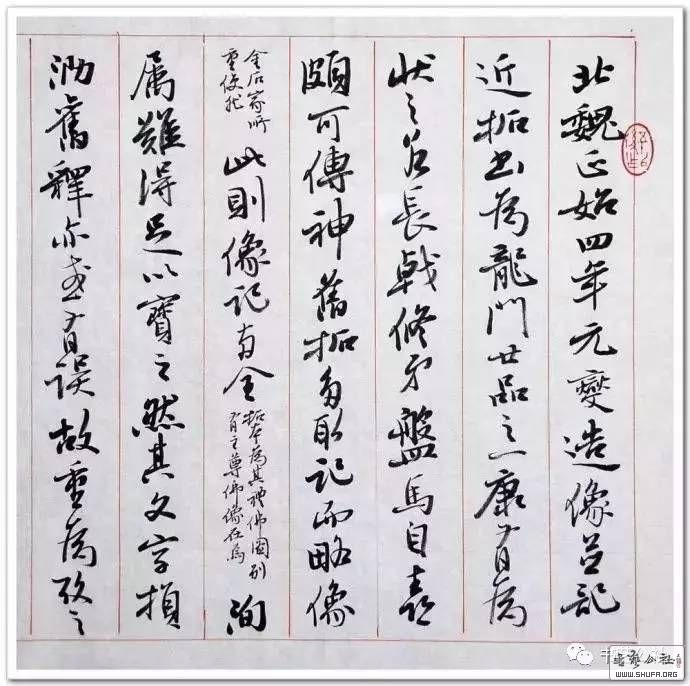 北魏正始四年元燮造像並記
近拓出為龍門廿品之一康有為
狀之若長戟修矛盤馬自喜
頗可傳神舊拓多取記而略像
金石家所
重使然
此則像記両全
拓本為其禮佛圖別
有主尊佛像在焉
洵
属難得足以寶之然其文字損
泐舊釋亦或有誤故重為攷之
公社
WWW.SHUFA.ORG